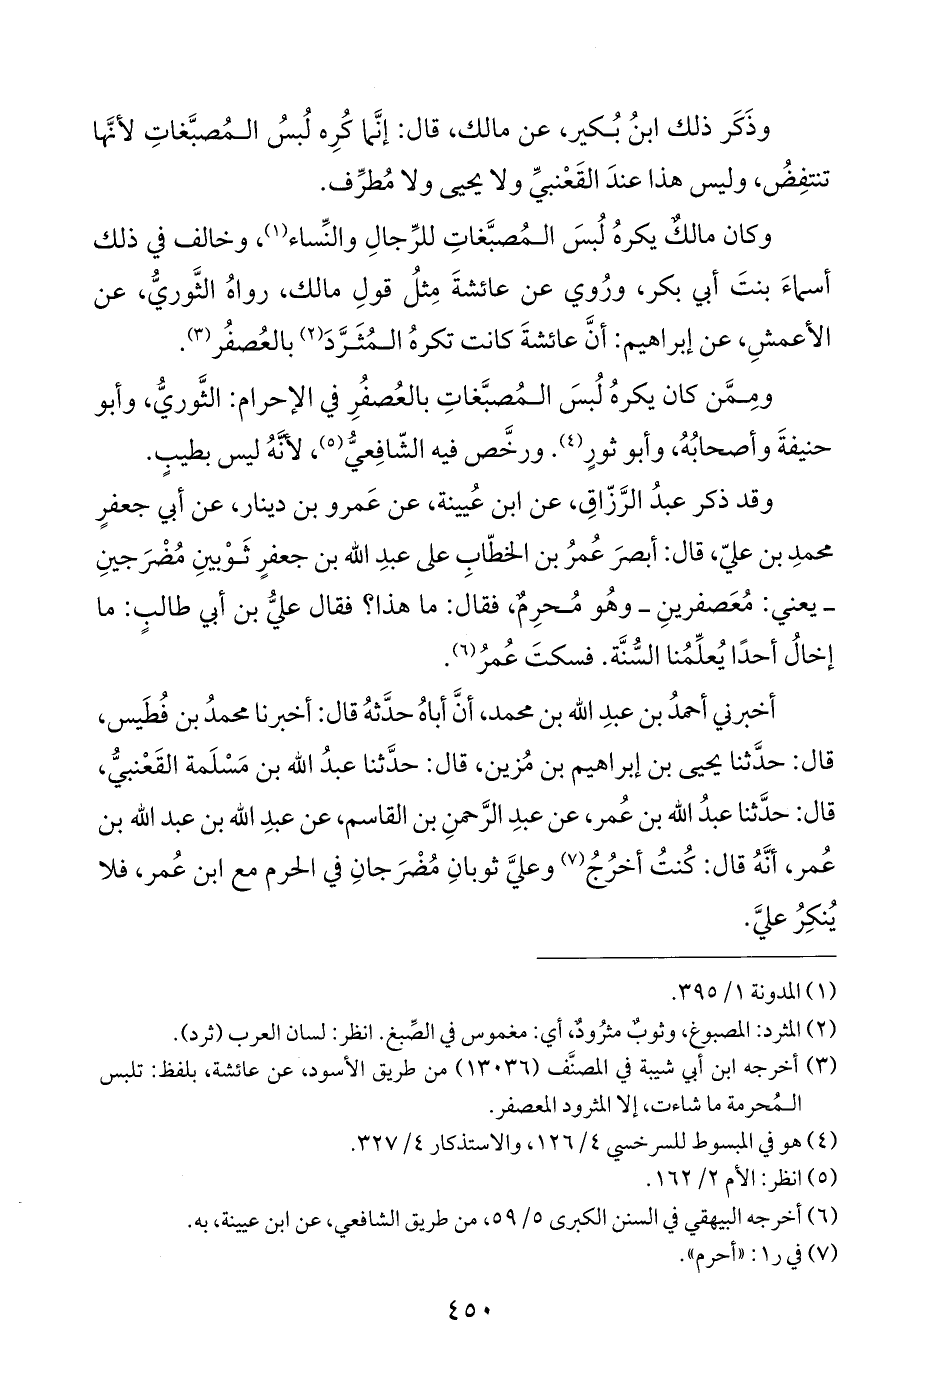 وذَكَر ذلك ابنُ بُكير، عن مالك، قال: إنَّما كُرِه لُبسُ الـمُصبَّغاتِ لأنَّها
تنتفِضُ، وليس هذا عندَ القَعْنبيِّ ولا يحيى ولا مُطرِّف.
وكان مالكٌ يكرهُ لُبسَ الـمُصبَّغاتِ للرِّجالِ والنِّساء(١)، وخالف في ذلك
أسماءَ بنتَ أبي بكر، ورُوي عن عائشةَ مِثلُ قولِ مالك، رواهُ الثَّوريُّ، عن
الأعمشِ، عن إبراهيم: أنَّ عائشةَ كانت تكرهُ الـمُثَرَّدَ(٢) بالعُصفُر(٣).
ومِـمَّن كان يكرهُ لُبسَ الـمُصبَّغاتِ بالعُصفُرِ في الإحرام: الثَّوريُّ، وأبو
حنيفةَ وأصحابُهُ، وأبو ثورٍ(٤). ورخَّص فيه الشّافِعيُّ(٥)، لأنَّهُ ليس بطيبٍ.
وقد ذكر عبدُ الرَّزّاقِ، عن ابن عُيينة، عن عَمرو بن دينار، عن أبي جعفرٍ
محمدِ بن عليّ، قال: أبصرَ عُمرُ بن الخطّابِ على عبدِ الله بن جعفرٍ ثَوْبينِ مُضْرَجينِ
ـ يعني: مُعَصفرينِ ـ وهُو مُـحرِمٌ، فقال: ما هذا؟ فقال عليُّ بن أبي طالبٍ: ما
إخالُ أحدًا يُعلِّمُنا السُّنَّة. فسكتَ عُمرُ(٦).
أخبرني أحمدُ بن عبدِ الله بن محمد، أنَّ أباهُ حدَّثهُ قال: أخبرنا محمدُ بن فُطَيس،
قال: حدَّثنا يحيى بن إبراهيم بن مُزين، قال: حدَّثنا عبدُ الله بن مَسْلَمة القَعْنبيُّ،
قال: حدَّثنا عبدُ الله بن عُمر، عن عبدِ الرَّحمنِ بن القاسم، عن عبدِ الله بن عبد الله بن
عُمر، أنَّهُ قال: كُنتُ أخرُجُ(٧) وعليَّ ثوبانِ مُضْرَجانِ في الحرم مع ابن عُمر، فلا
يُنكِرُ عليَّ.
(١) المدونة ١/ ٣٩٥.
(٢) المثرد: المصبوغ، وثوبٌ مثرُودٌ، أي: مغموس في الصِّبغ. انظر: لسان العرب (ثرد).
(٣) أخرجه ابن أبي شيبة في المصنَّف (١٣٠٣٦) من طريق الأسود، عن عائشة، بلفظ: تلبس
الـمُحرمة ما شاءت، إلا المثرود المعصفر.
(٤) هو في المبسوط للسرخسي ٤/ ١٢٦، والاستذكار ٤/ ٣٢٧.
(٥) انظر: الأم ٢/ ١٦٢.
(٦) أخرجه البيهقي في السنن الكبرى ٥/ ٥٩، من طريق الشافعي، عن ابن عيينة، به.
(٧) في ر١: «أحرم».
٤٥٠